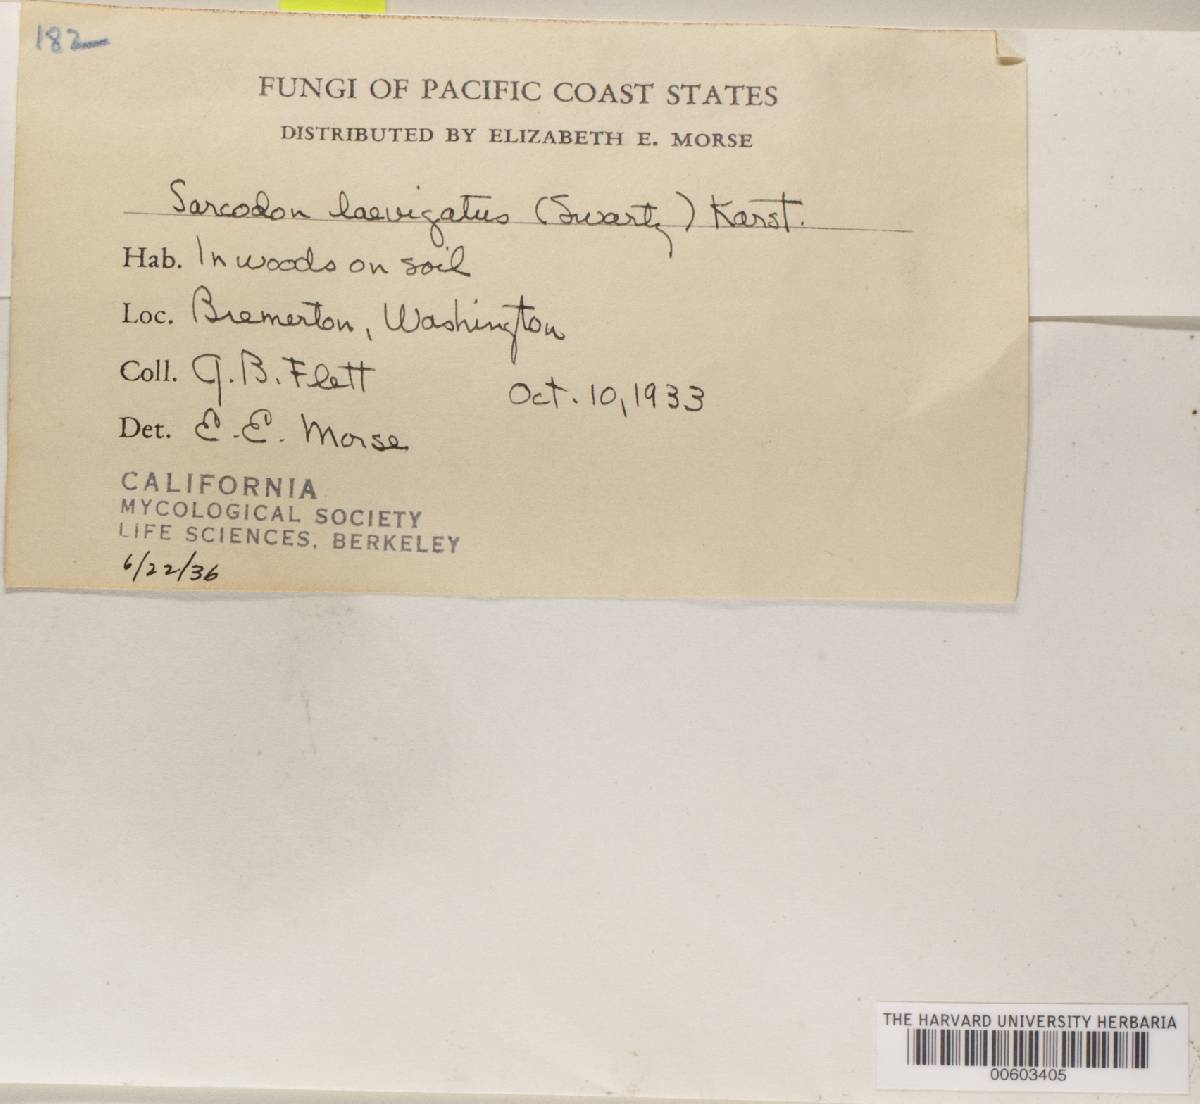 182
FUNGI OF PACIFIC COAST STATES
DISTRIBUTED BY ELIZABETH E. MORSE
Sarcodon laevigatus (Swartz) Karst.
Hab. In woods on soil
Loc. Bremerton, Washington
Coll. J. B. Flett Oct. 10, 1933
Det. E. E. Morse
CALIFORNIA
MYCOLOGICAL SOCIETY
LIFE SCIENCES, BERKELEY
6/22/36
THE HARVARD UNIVERSITY HERBARIA
00603405